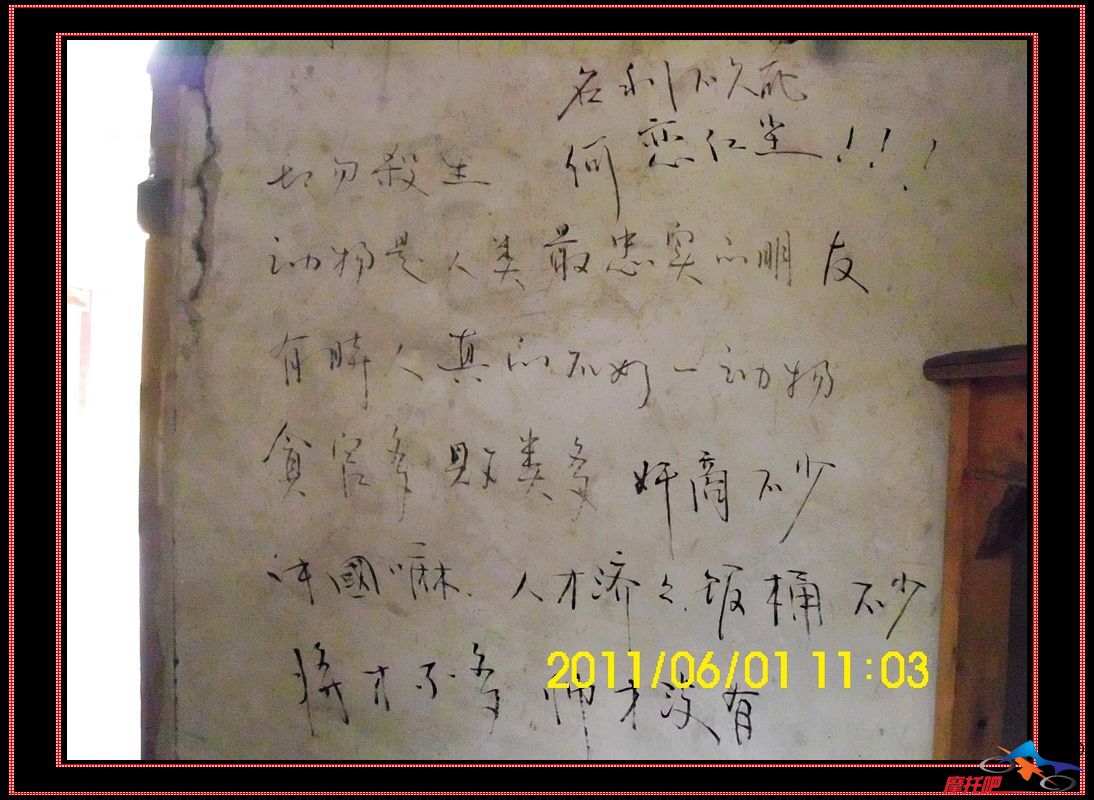 名利
何恋红尘!!!
切勿殺生
动物是人类最忠实的朋友
有時人真的不如一动物
貪官多 败类多 奸商不少
中國嘛. 人才济々. 饭桶不少
将才不多 帅才没有
2011/06/01 11:03
摩托吧